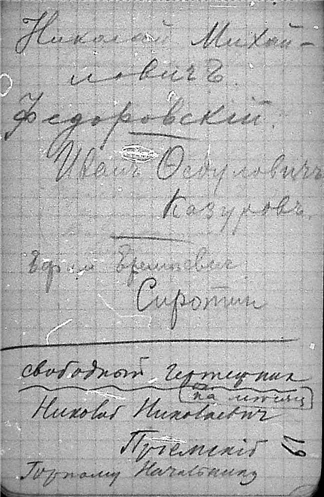 Николай Михай-
ловичъ.
Федоровскій.
Иванъ Ѳедуловичъ
Казуровъ.
Ефим Еремѣевич
Сиротин
свободный чертежник
на мѣсяц
Николай Николаевич
Пріемскій
Горному Начальнику